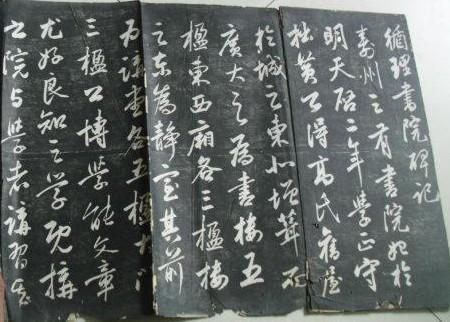 循理書院碑記
壽州之有書院始於
明天啓二年學正守
拙黃公得高氏舊廬
於城之東北增葺而
廣大之為書樓五
楹東西廂各三楹樓
之東為靜室其前
為講堂各五楹門
三楹公博學能文章
尤好良知之學既搆
院與學者講習其